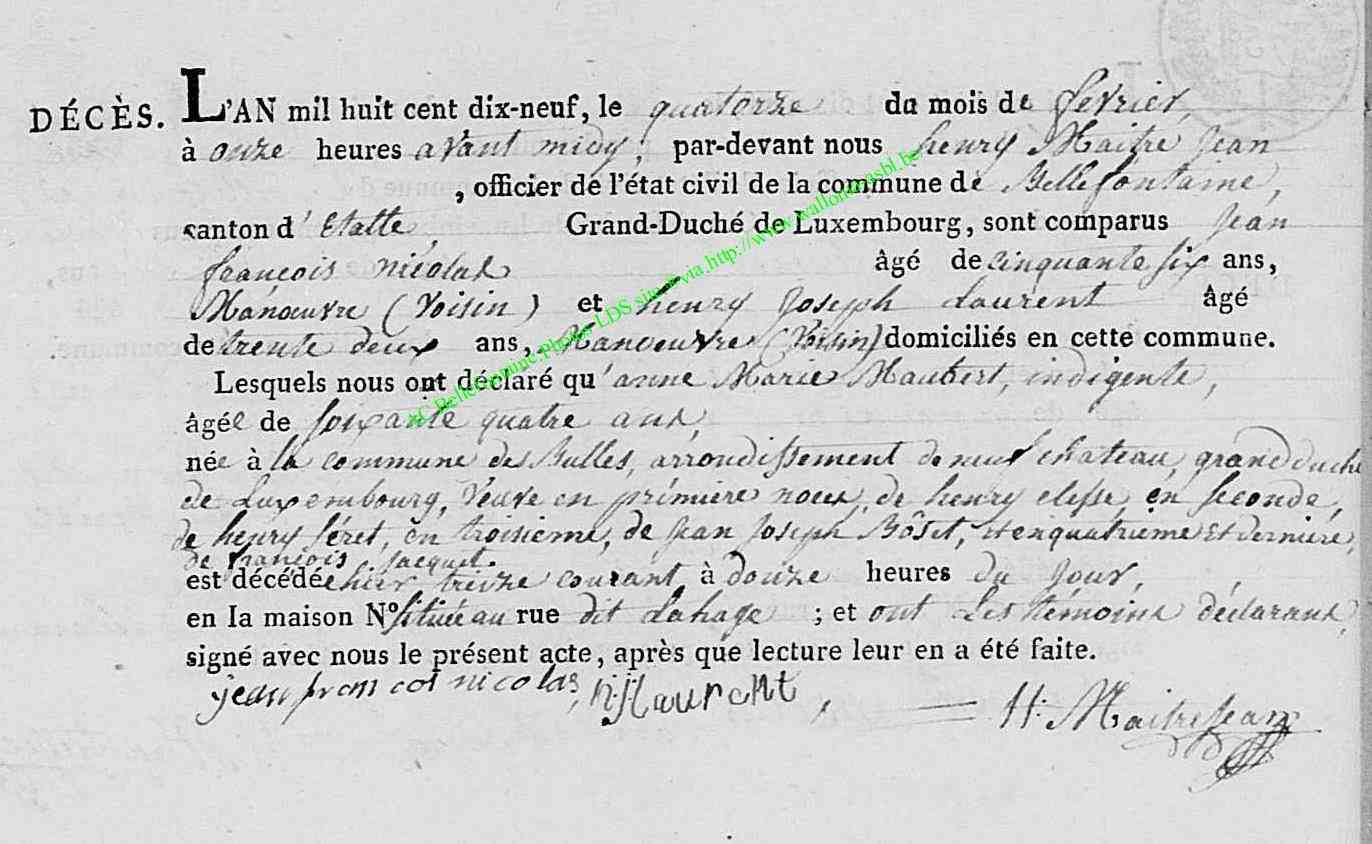 DÉCÈS. L'AN mil huit cent dix-neuf, le quatorze du mois de fevrier,
à onze heures avant midy, par-devant nous henry Maitre Jean
, officier de l'état civil de la commune de Bellefontaine,
canton d'Etalle, Grand-Duché de Luxembourg, sont comparus Jean
françois nicolas âgé de cinquante six ans,
Manœuvre (Voisin) et henry Joseph Laurent âgé
de trente deux ans, Manoeuvre (Voisin) domiciliés en cette commune.
Lesquels nous ont déclaré qu'anne Marie Maubert, indigente,
âgée de soixante quatre ans,
née à la commune des Bulles, arrondissement de neuf chateau, grand duché
de Luxembourg, Veuve en prémiere noces, de henry elesse, en seconde,
de henry féret, en troisieme, de Jean Joseph Bôset, et en quatrieme et derniere,
de françois Jacquet.
est décédée hier treize courant, à douze heures du jour,
en la maison N° située au rue dit Lahage ; et ont Les témoins déclarans,
signé avec nous le présent acte, après que lecture leur en a été faite.
jean francoi nicolas, h:j:Laurent, H: MaitreJean
C Bellefontaine Photos LDS site via http://www.wallonia asbl.be